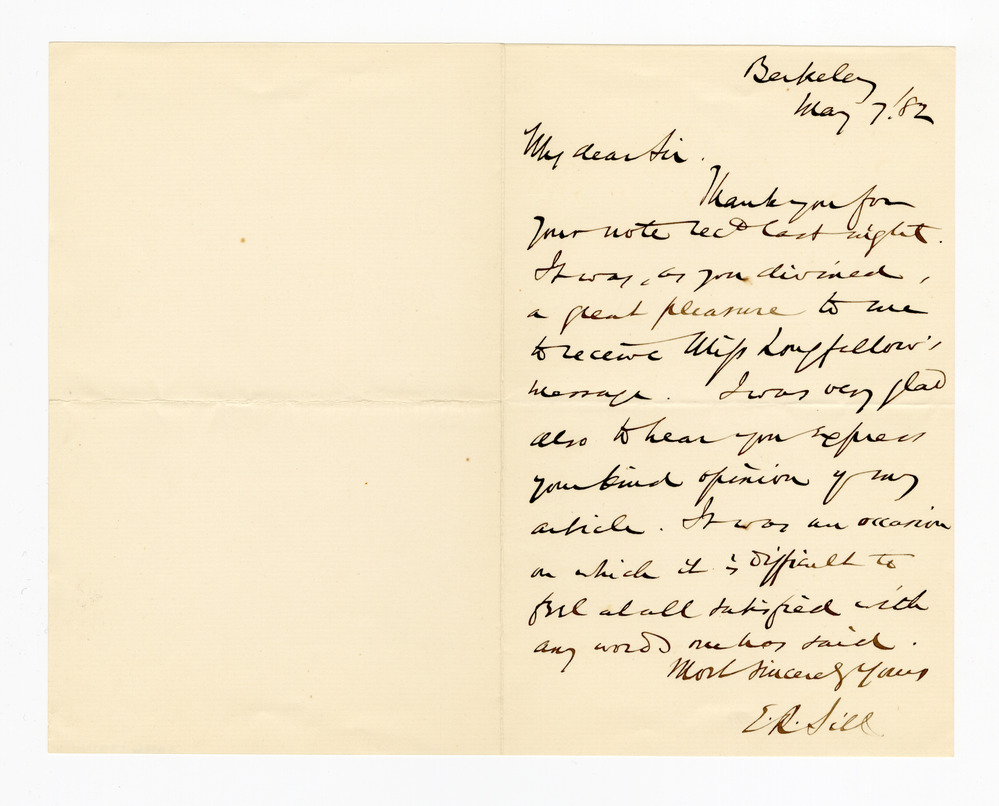 Berkeley
May 7. '82
My dear Sir.
Thank you for
your note rec'd last night.
It was, as you divined,
a great pleasure to me
to receive Miss Longfellow's
message. I was very glad
also to hear you express
your kind opinion of my
article. It was an occasion
on which it is difficult to
feel at all satisfied with
any words one has said.
Most sincerely Yours
E. R. Sill